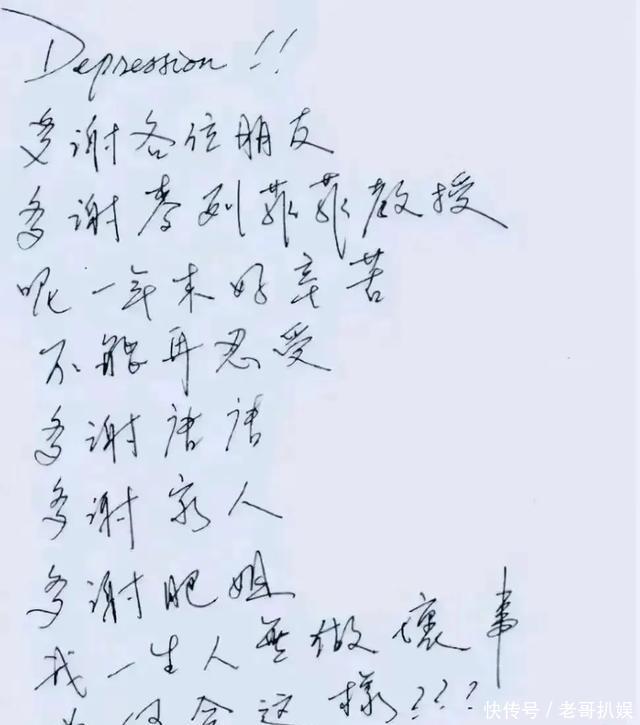 Depression!!
多謝各位朋友
多謝麥列菲菲教授
呢一年來好辛苦
不能再忍受
多謝唐唐
多謝家人
多謝肥姐
我一生人無做壞事
何會這樣???
快传号 / 老哥扒娱